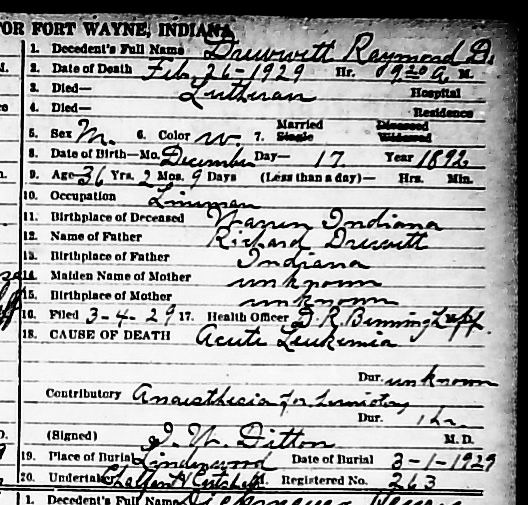 FOR FORT WAYNE, INDIANA
1. Decedent's Full Name Druwitt Raymond D.
2. Date of Death Feb. 26-1929 Hr. 9 20 a. M.
3. Died— Lutheran Hospital
4. Died— Residence
5. Sex M. 6. Color W. 7. Married Single Divorced Widowed
8. Date of Birth—Mo. December Day— 17 Year 1892
9. Age 36 Yrs. 2 Mos. 9 Days (Less than a day)— Hrs. Min.
10. Occupation Lineman
11. Birthplace of Deceased Warren Indiana
12. Name of Father Richard Druwitt
13. Birthplace of Father Indiana
14. Maiden Name of Mother unknown
15. Birthplace of Mother unknown
16. Filed 3-4-29 17. Health Officer
18. CAUSE OF DEATH Acute Leukemia
Dur. unknown
Contributory Anaesthesia for
Dur. 1 hr.
(Signed) Ditton M. D.
19. Place of Burial Lindenwood Date of Burial 3-1-1929
20. Undertaker Registered No. 263
1. Decedent's Full Name